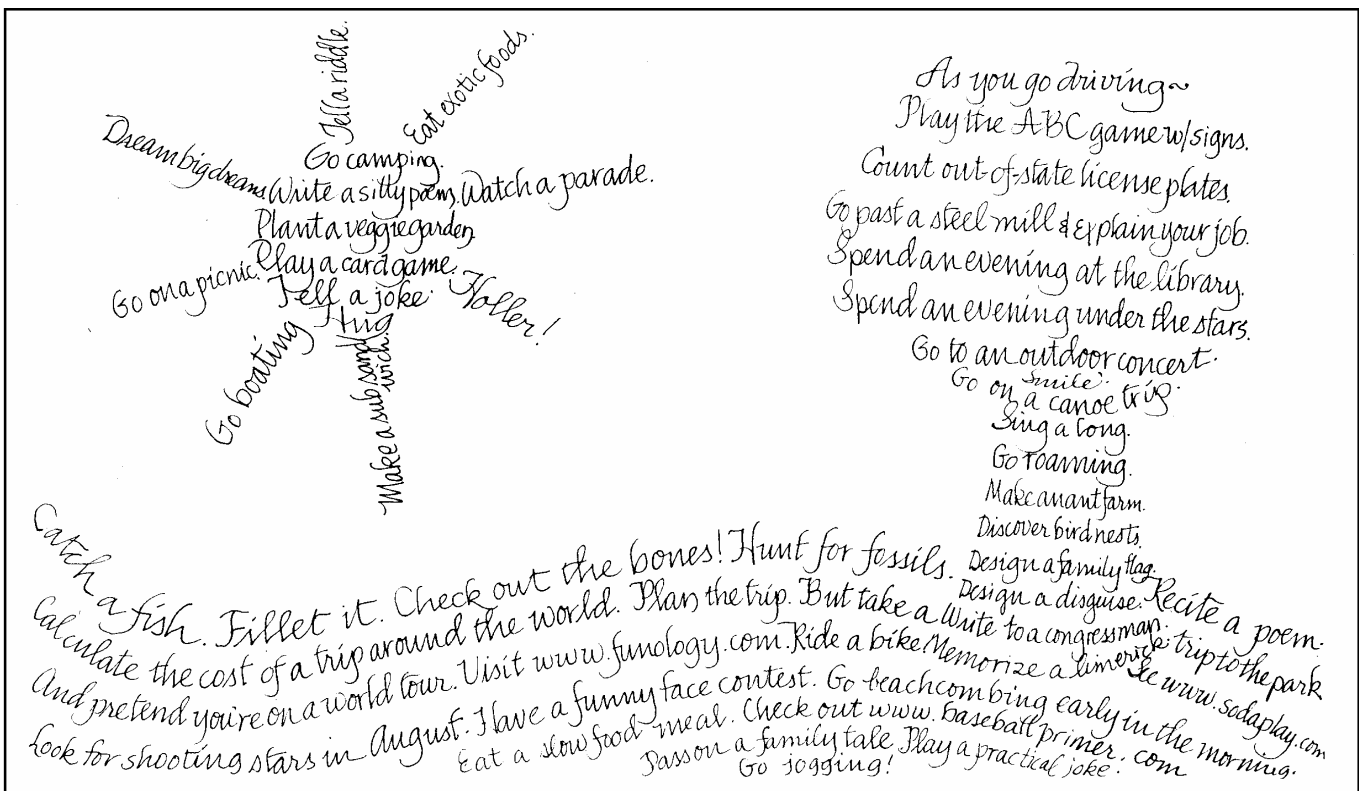 Tell a riddle.
Eat exotic foods.
Dream big dreams.
Go camping.
Write a silly poem.
Watch a parade.
Plant a veggie garden.
Play a card game.
Go on a picnic.
Tell a joke.
Holler!
Hug
Go boating
Make a sub sand
wich.
As you go driving~
Play the ABC game w/signs.
Count out-of-state license plates.
Go past a steel mill & explain your job.
Spend an evening at the library.
Spend an evening under the stars.
Go to an outdoor concert.
Smile.
Go on a canoe trip.
Sing a long.
Go roaming.
Make an ant farm.
Discover bird nests.
Design a family flag.
Design a disguise.
Recite a poem.
Write to a congressman.
Catch a fish. Fillet it. Check out the bones! Hunt for fossils.
Calculate the cost of a trip around the world. Plan the trip. But take a trip to the park
And pretend you're on a world tour. Visit www.funology.com. Ride a bike. Memorize a limerick. See www.sodaplay.com
Look for shooting stars in August. Have a funny face contest. Go beachcombing early in the morning.
Eat a slow food meal. Check out www.baseballprimer.com
Pass on a family tale. Play a practical joke.
Go jogging!